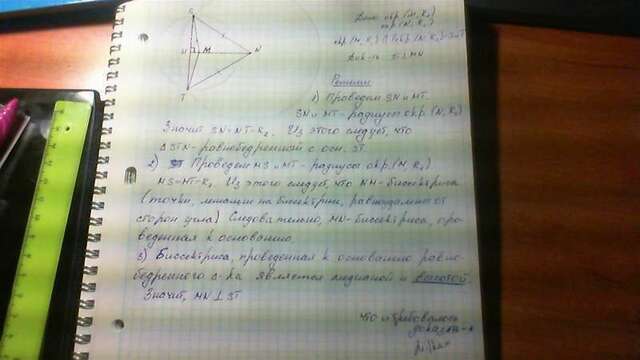 S
U
M
N
T
Дано: окр. (M, R₁)
окр. (N, R₂)
окр (M, R₁) ∩ окр. (N, R₂) = S и T
Док-ть ST ⊥ MN
Решение
1) Проведем SN и MT.
SN и MT - радиусы окр. (N, R₂)
Значит SN = NT = R₂. Из этого следует, что
△STN - равнобедренный с осн. ST.
2) Проведем MS и MT - радиусы окр. (M, R₁)
MS = MT = R₁. Из этого следует, что NM - биссектриса
(точки, лежащие на биссектрисе, равноудалены от
сторон угла) Следовательно, MN - биссектриса, про-
веденная к основанию.
3) Биссектриса, проведенная к основанию равно-
бедренного △-ка является медианой и высотой
Значит, MN ⊥ ST
что и требовалось
доказать